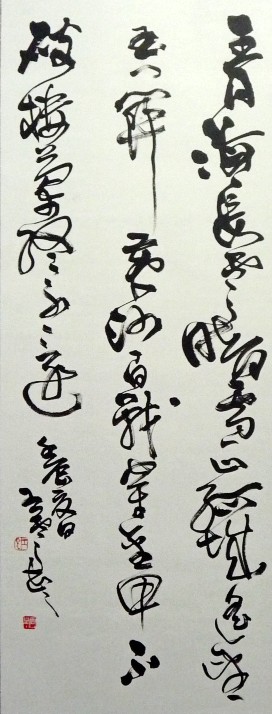 青海長雲暗雪山孤城遙望
玉門關黃沙百戰穿金甲不
破樓蘭終不還
壬辰夏日